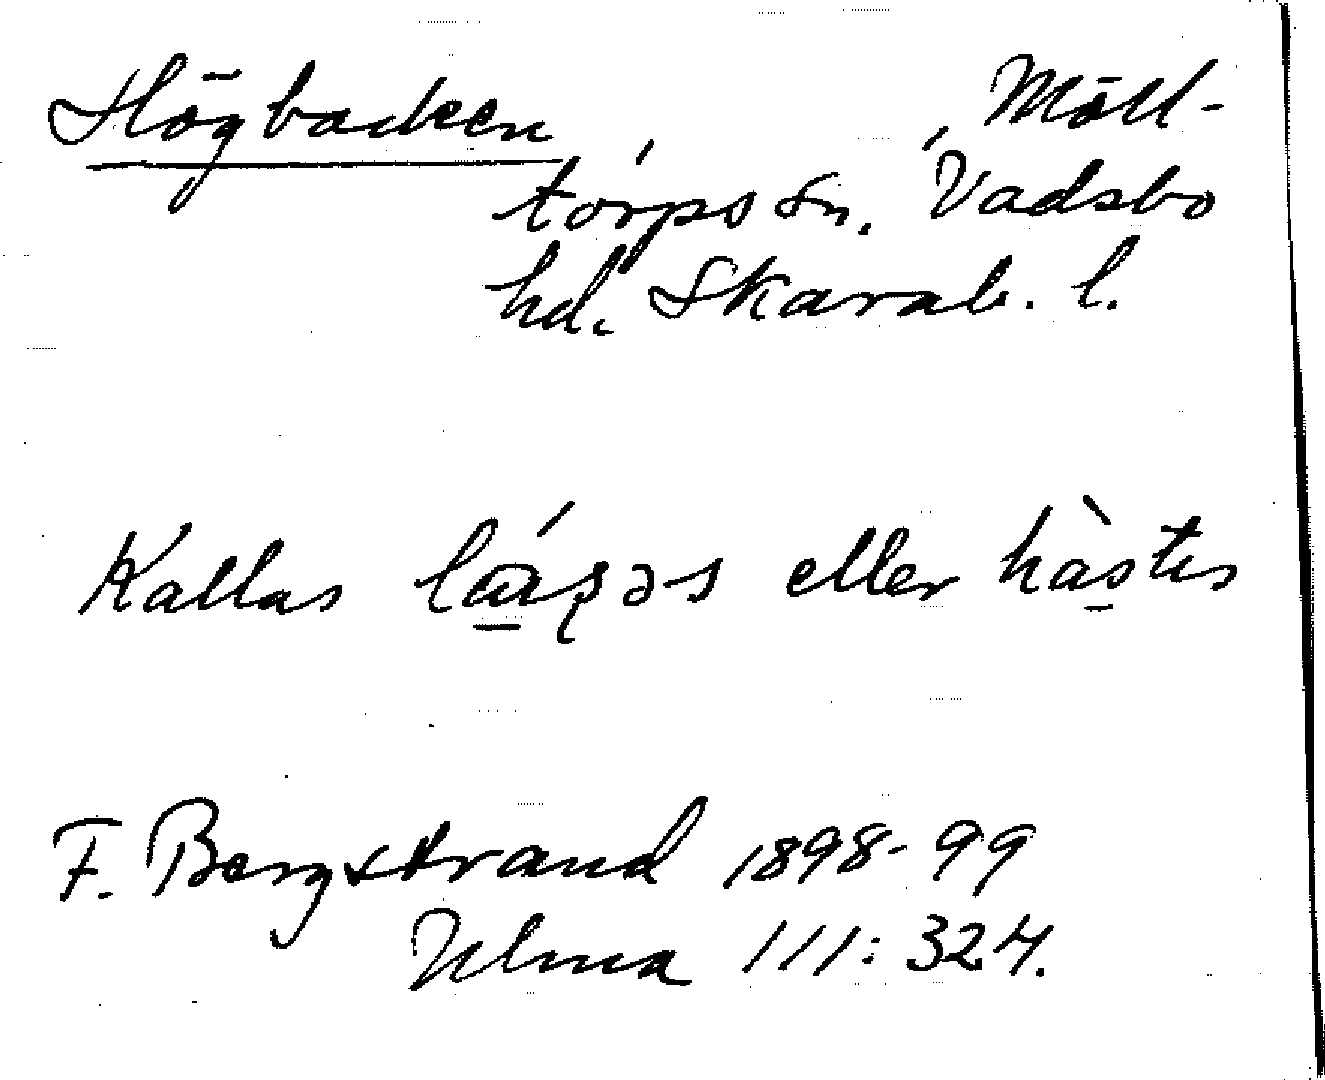 Högbacken , , Möll-
torps sn. Vadsbo
hd. Skarab. l.
Kallas eller
F. Bergstrand 1898-99
Ulma 111:324.